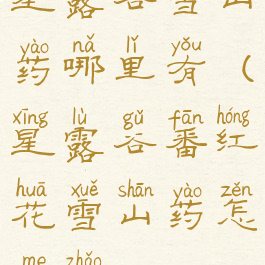 星露谷雪山
yào nǎ lǐ yǒu
药哪里有（
xīng lù gǔ fān hóng
星露谷番红
huā xuě shān yào zěn
花雪山药怎
me zhǎo